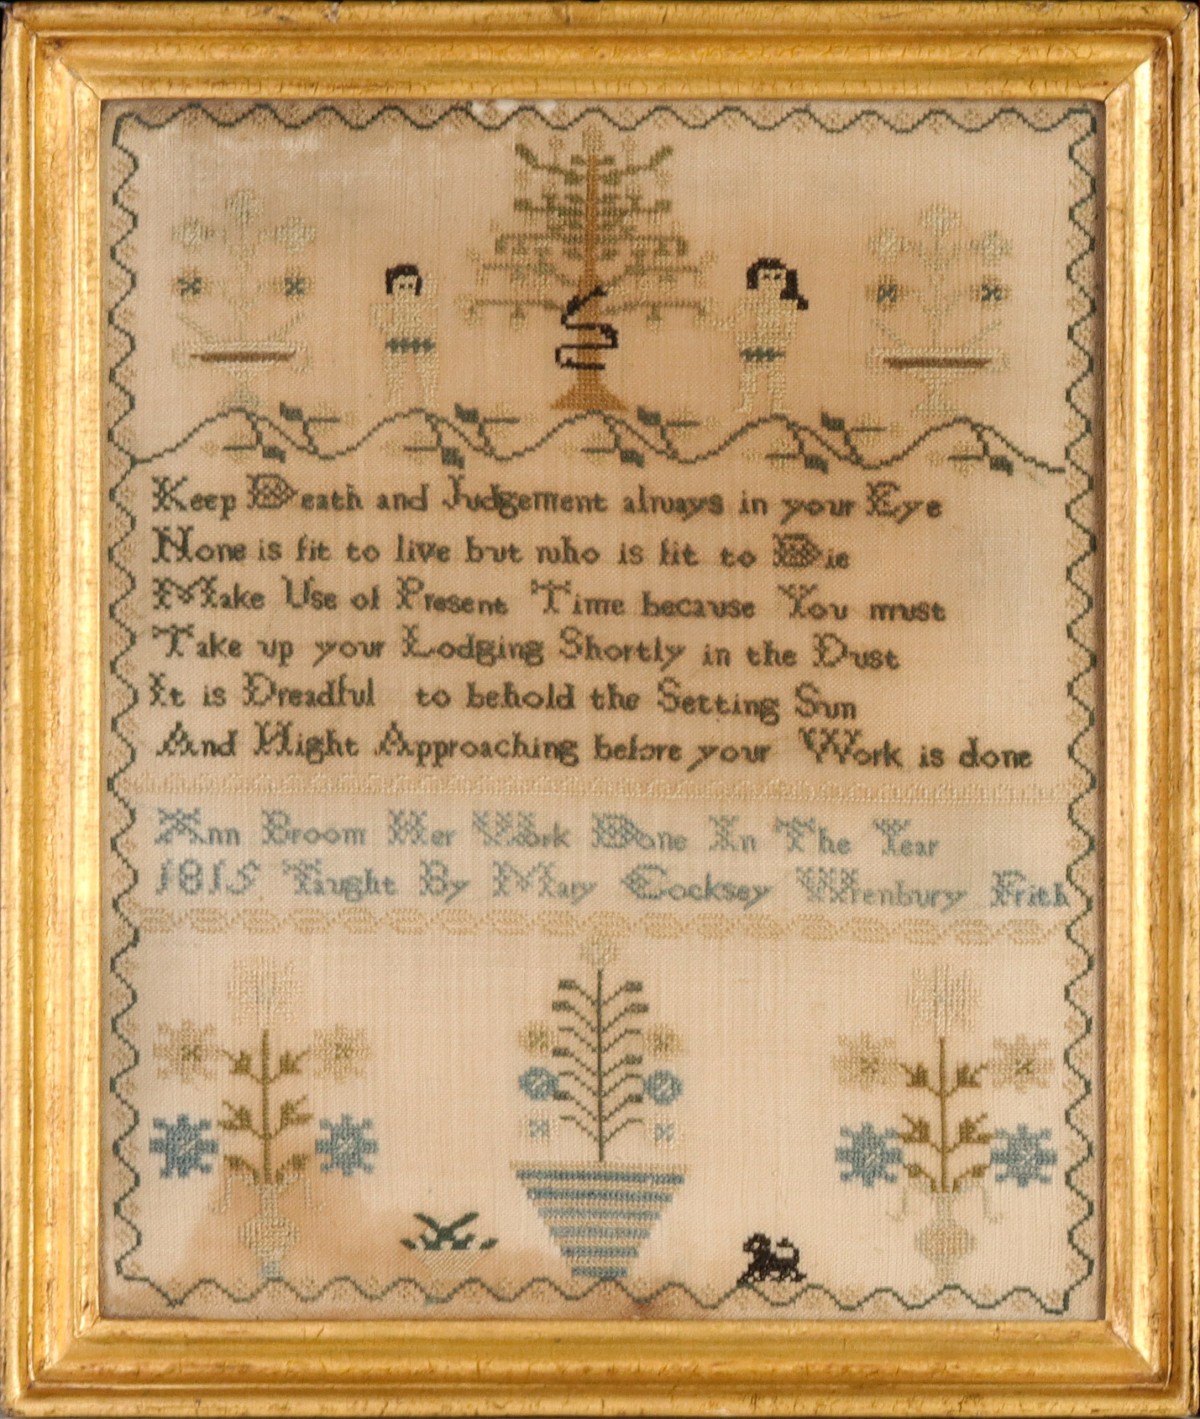 Keep Death and Judgement always in your Eye
None is fit to live but who is fit to Die
Make Use of Present Time because You must
Take up your Lodging Shortly in the Dust
It is Dreadful to behold the Setting Sun
And Night Approaching before your Work is done
Ann Broom Her Work Done In The Year
1815 Taught By Mary Cocksey Wrenbury Frith